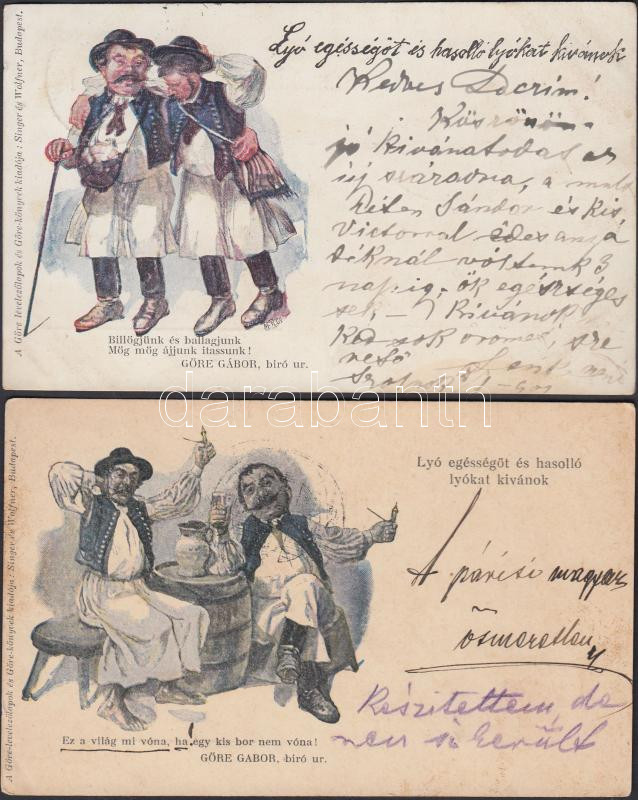 A Göre levelezőlapok és Göre-könyvek kiadója: Singer és Wolfner, Budapest.
Lyó egésségöt és hasolló lyókat kivánok
Kedves Docrim!
Köszönöm
jó kivanatodat az
új századra, a mult
héten Sándor és kis
Victorral édes anyá
téknál voltunk 3
napig, ők egészséges
sek, Kivánok
sok örömet, sze
rető
Billögjünk és ballagjunk
Mög mög ájjunk itassunk!
GÖRE GÁBOR, biró ur.
darabanth
A Göre-levelezőlapok és Göre-könyvek kiadója: Singer és Wolfner, Budapest.
Lyó egésségöt és hasolló
lyókat kivánok
A párisi magyar
ösmeretlen
Készitettem, de
nem sikerült
Ez a világ mi vóna, ha egy kis bor nem vóna!
GÖRE GABOR, biró ur.